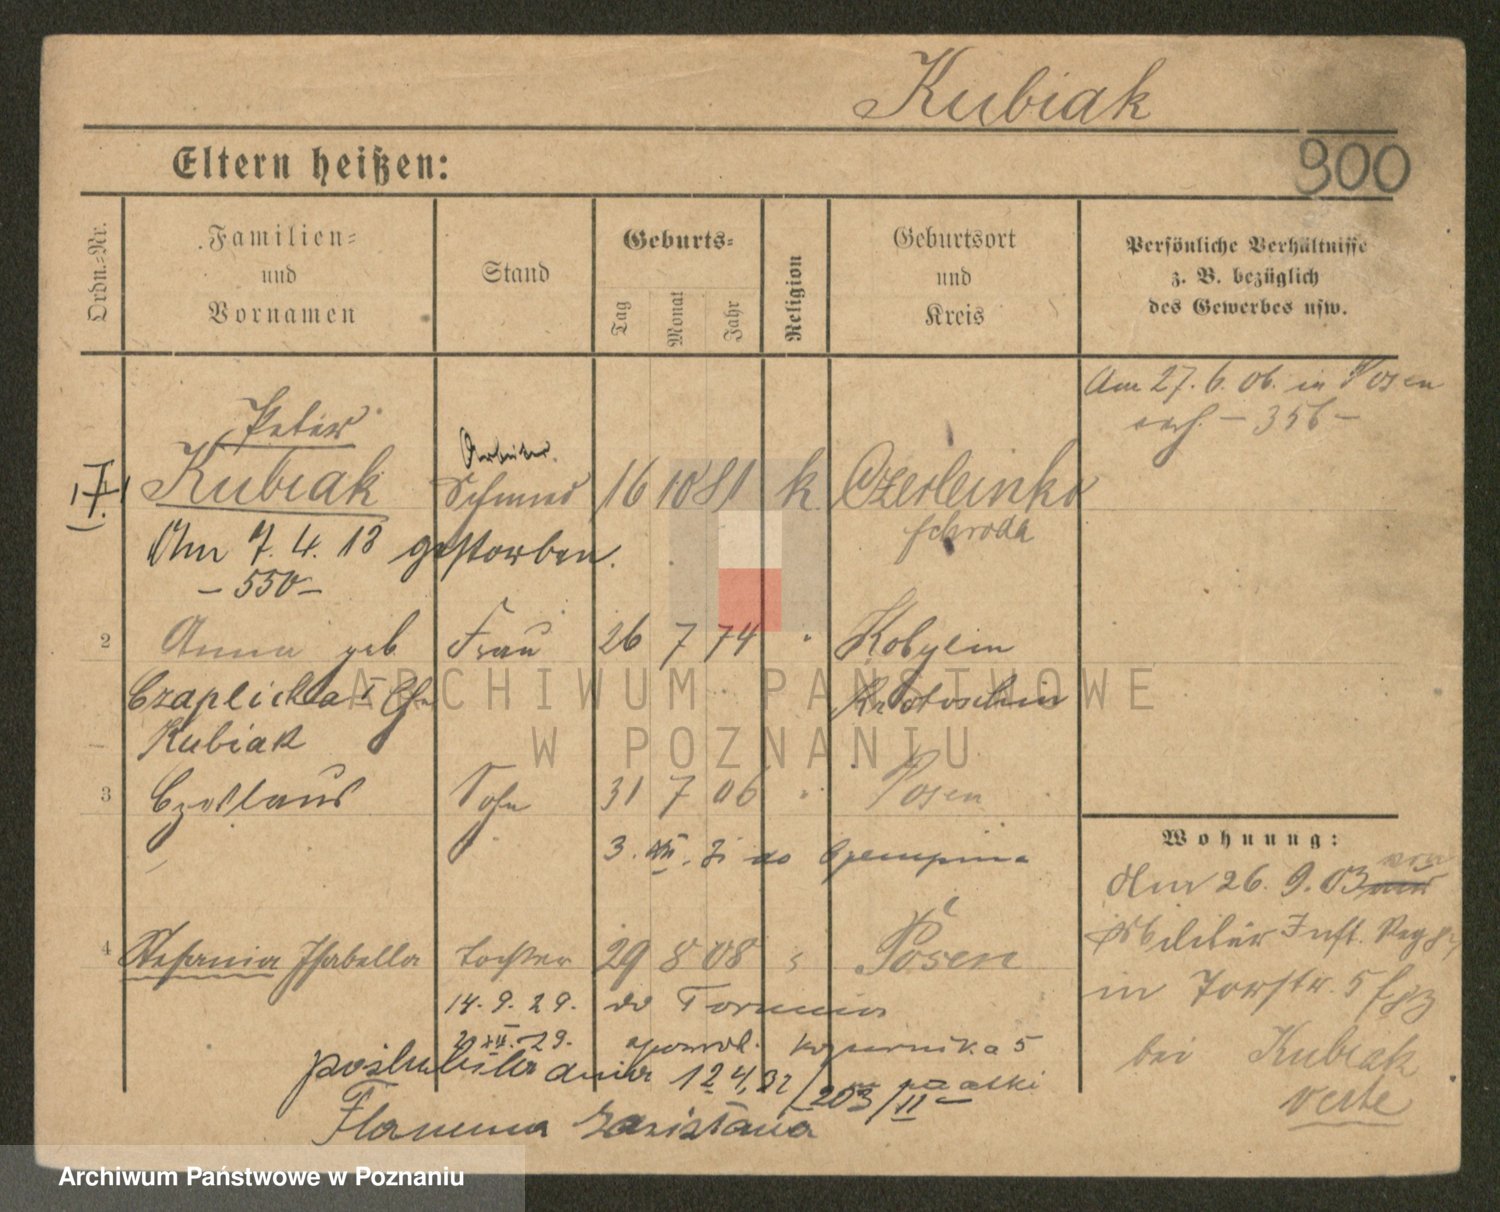 Kubiak
Eltern heißen:
900
Ordn.-Nr.
Familien-
und
Vornamen
Stand
Geburts-
Tag
Monat
Jahr
Religion
Geburtsort
und
Kreis
Persönliche Verhältnisse
z. B. bezüglich
des Gewerbes usw.
Am 27. 6. 06. in Posen
– 356 –
Peter
Arbeiter
Kubiak Schmied 16 10 81 k.
Schroda
Am 7. 4. 13 gestorben.
– 550 –
2 Anna geb Frau 26 7 74 " Kobylin
Czaplicka I Krotoschin
Kubiak
3 Czeslaus Sohn 31 7 06 " Posen
3. XII. do
Wohnung:
Am 26. 9. 03 von
Militär Inft. Reg
in Torstr. 5
bei Kubiak
verte
4 Stefania Isabella Tochter 29 8 08 " Posen
14. 9. 29. do Torunia
XII. 29. Kopernika 5
poślubiła dnia 12 4, 32 / 203 / II
Flamma Garistana
ARCHIWUM PAŃSTWOWE
W POZNANIU
Archiwum Państwowe w Poznaniu